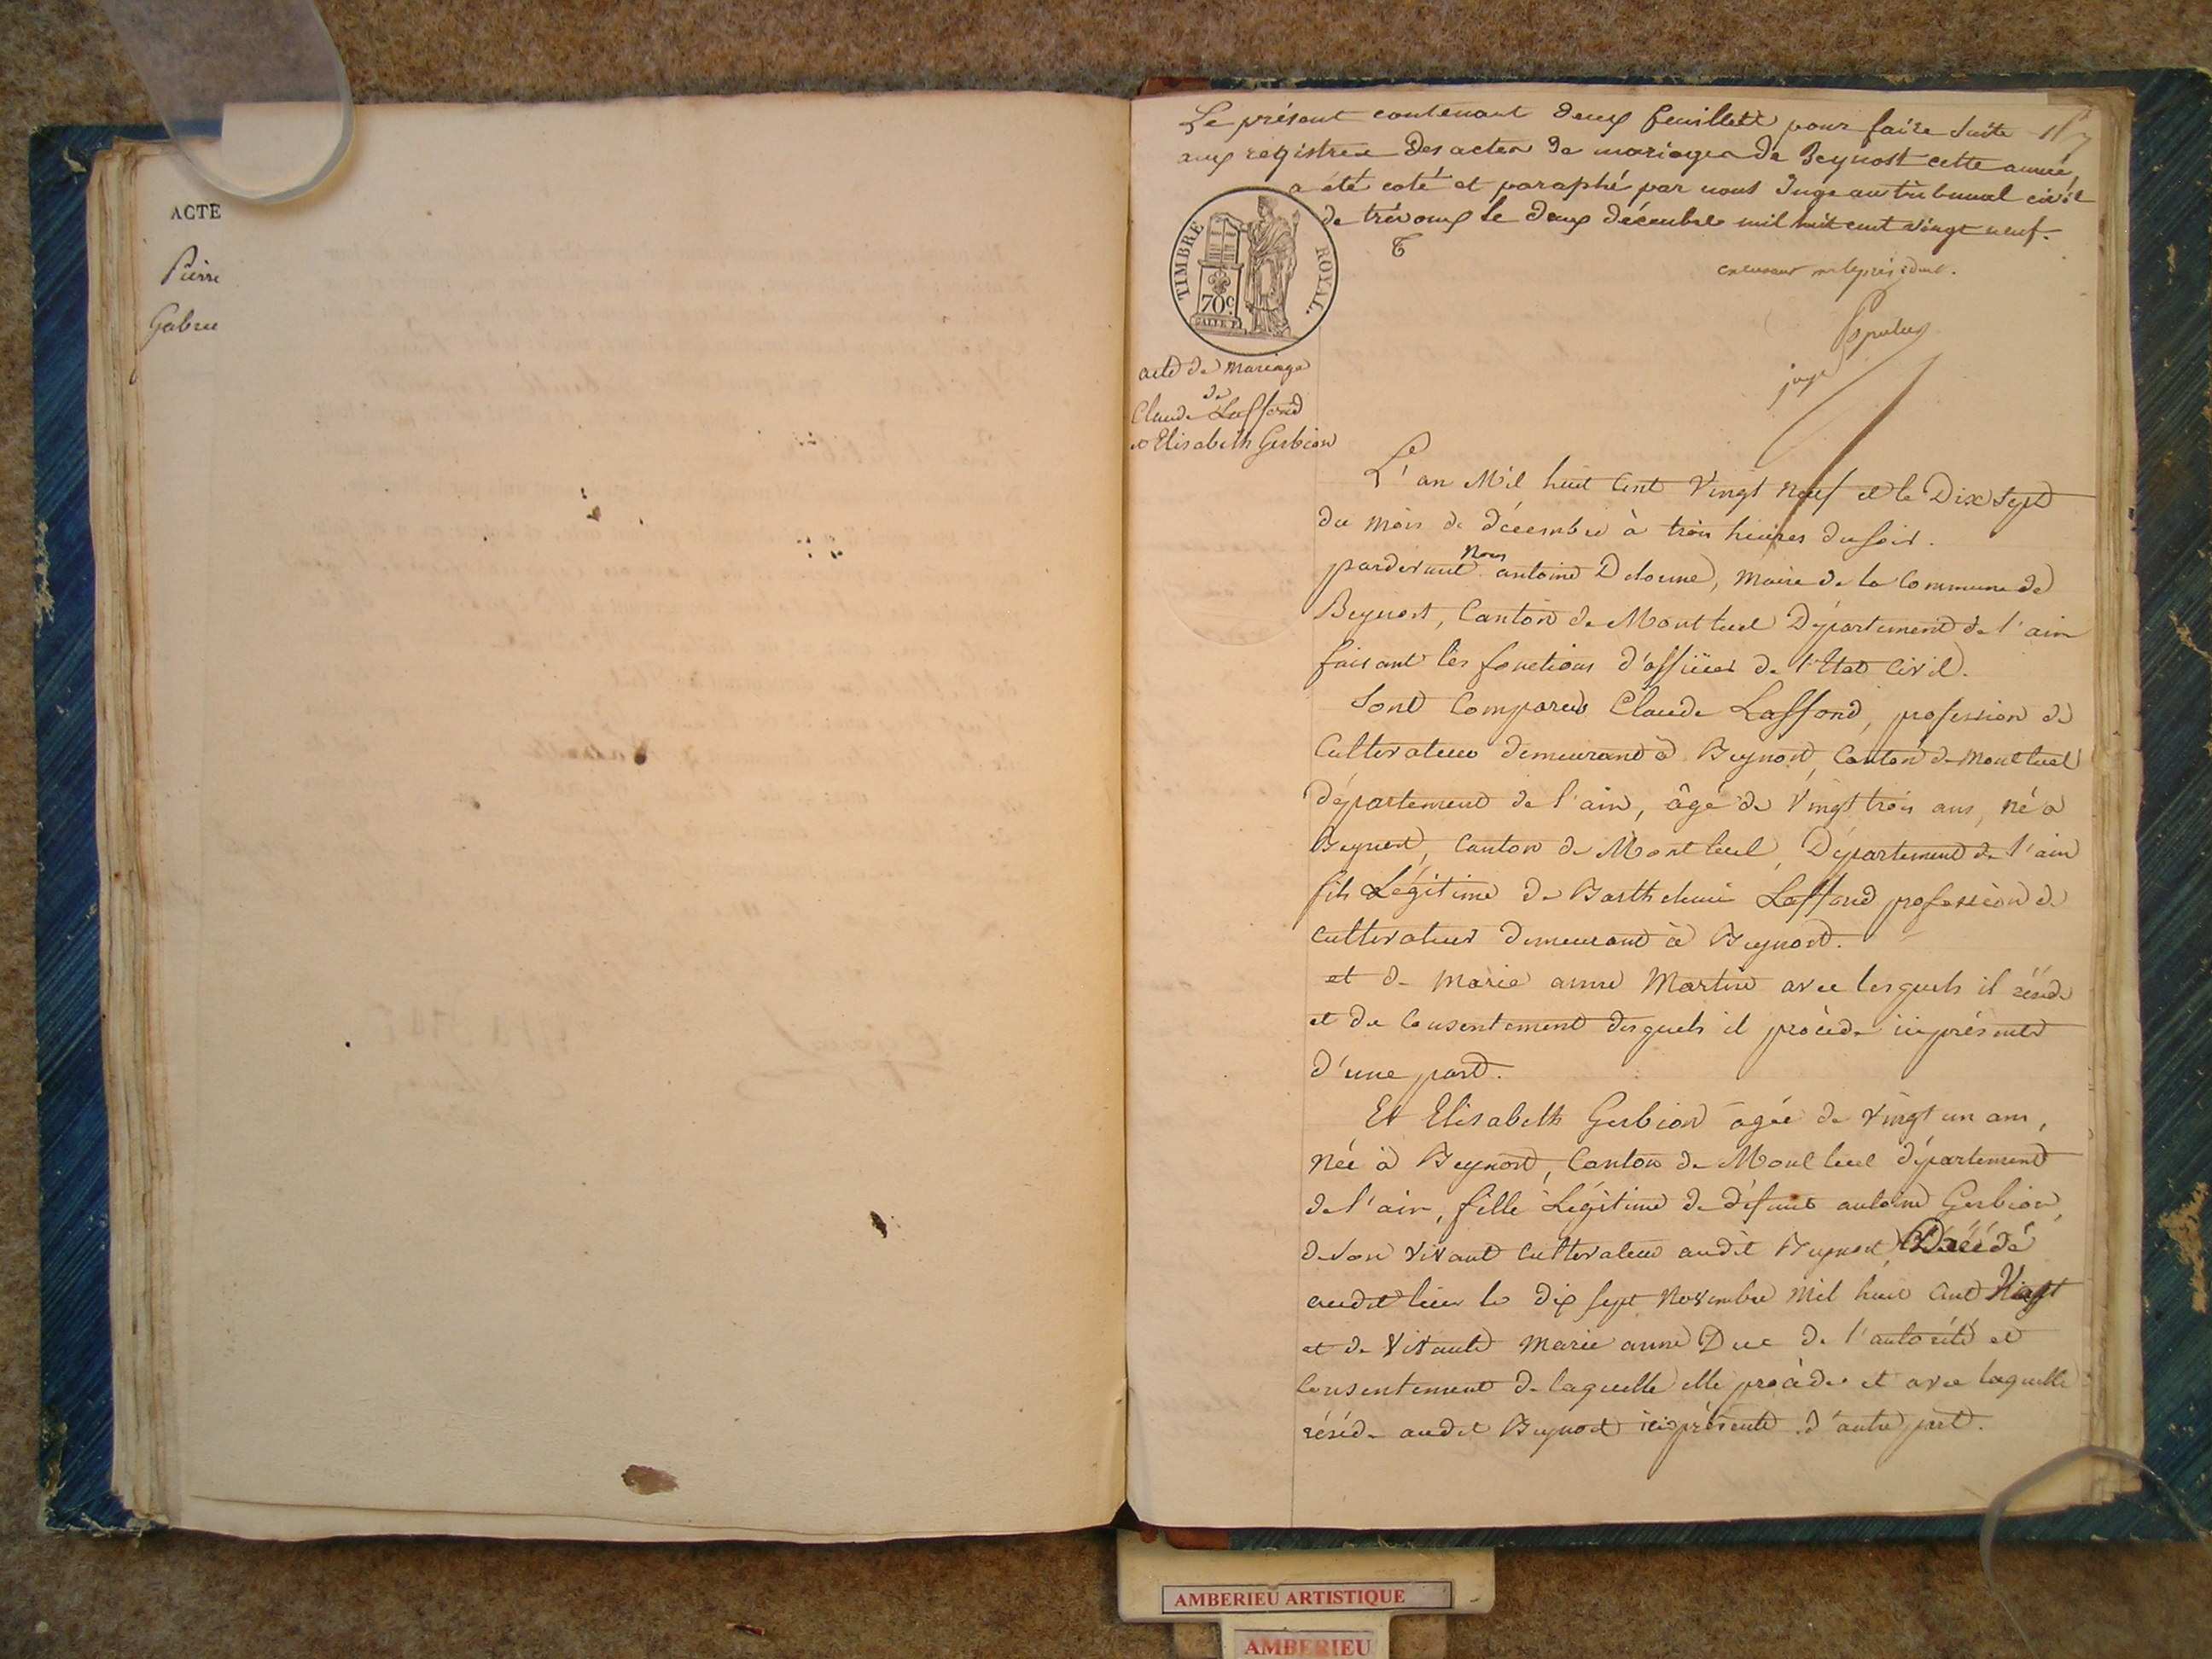 ACTE
Pierre
Gabrie
Le présent contenant deux feuillets pour faire suite
aux registres des actes de mariages de Beynost cette année,
a été coté et paraphé par nous Juge au tribunal civil
de trévoux le deux décembre mil huit cent vingt neuf.
TIMBRE ROYAL.
70c
juge
acte de Mariage
de
Claude Laffond
et Elisabeth Gerbion
L'an Mil huit Cent Vingt Neuf et le Dix Sept
du mois de décembre à trois heures du soir.
pardevant Nous antoine Delorme, Maire de la Commune de
Beynost, Canton de Montluel Département de l'ain
faisant les fonctions d'officier de l'Etat Civil.
Sont Comparus Claude Laffond, profession de
Cultivateur demeurant à Beynost, Canton de Montluel
département de l'ain, âgé de Vingt trois ans, né à
Beynost, Canton de Montluel, Département de l'ain
fils Légitime de Barthelemi Laffond profession de
Cultivateur demeurant à Beynost.
et de Marie anne Martin avec lesquels il réside
et du Consentement desquels il procède ici présents
d'une part.
Et Elisabeth Gerbion âgée de Vingt un ans,
Née à Beynost, Canton de Montluel département
de l'ain, fille Légitime de défunt antoine Gerbion,
de son Vivant Cultivateur audit Beynost, Décédé
audit lieu le dix sept Novembre Mil huit Cent Vingt
et de Vivante Marie anne Duc de l'autorité et
Consentement de laquelle elle procède et avec laquelle
réside audit Beynost ici présente d'autre part.
AMBERIEU ARTISTIQUE
AMBERIEU